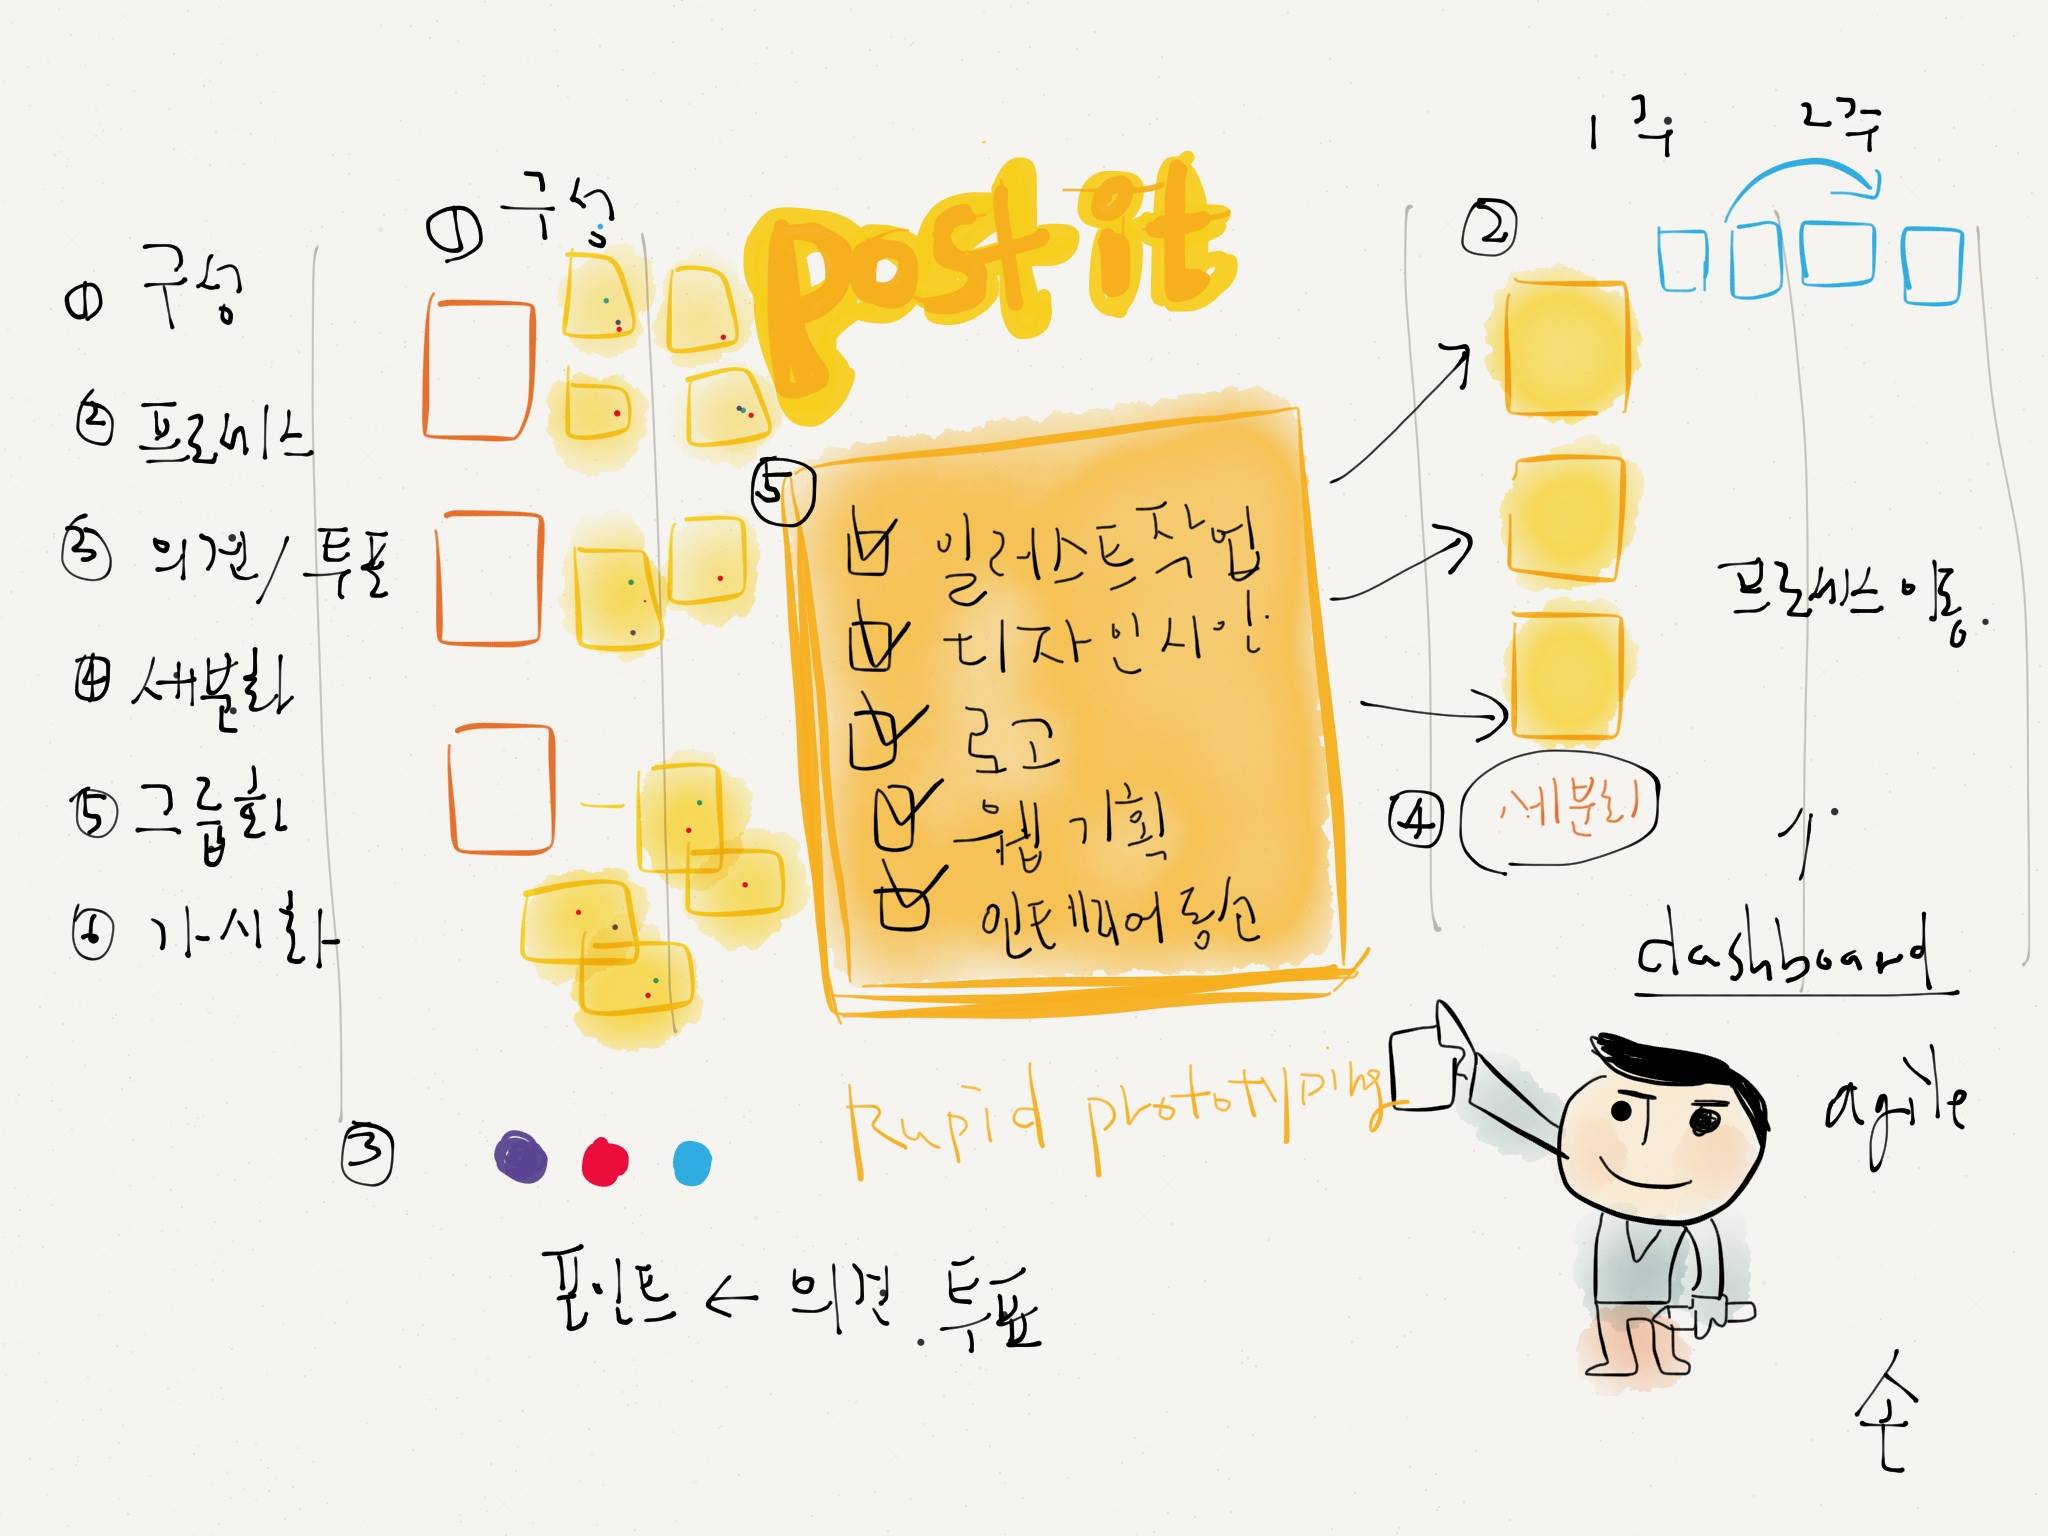 ① 구성
② 프로세스
③ 의견/투표
④ 세분화
⑤ 그룹화
⑥ 가시화
① 구성
post it
⑤
일러스트작업
디자인시안
로고
웹 기획
인테리어 동선
1주 2주
②
프로세스 이동.
④ 세분화
dashboard
agile
Rapid prototyping
③
포인트 ← 의견. 투표